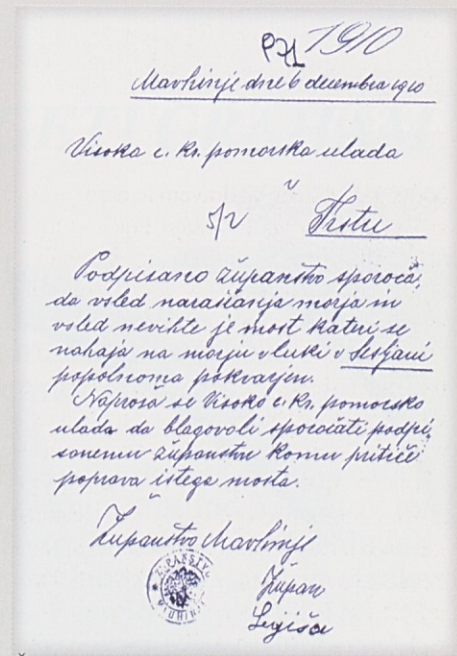 1910
Mavhinje dne 6 decembra 1910
Visoka c. kr. pomorska vlada
v
5/2 Trstu
Podpisano županstvo sporoča,
da vsled naraščanja morja in
vsled nevihte je most kateri se
nahaja na morju v luki v Sesljani
popolnoma pokvarjen.
Naprosa se Visoko c. kr. pomorsko
vlada da blagovoli sporočati podpi
sanemu županstvu komu pritiče
poprava istega mosta.
Županstvo Mavhinje
Župan
Legiša